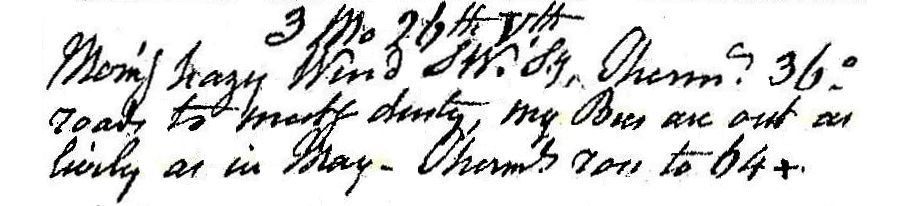 3 Mo 26th Vth
Morng hazy Wind SW. Sy. Therm. 36°
roads to meetg dusty, my Bees are out as
lively as in May - Therm. ros to 64 +.